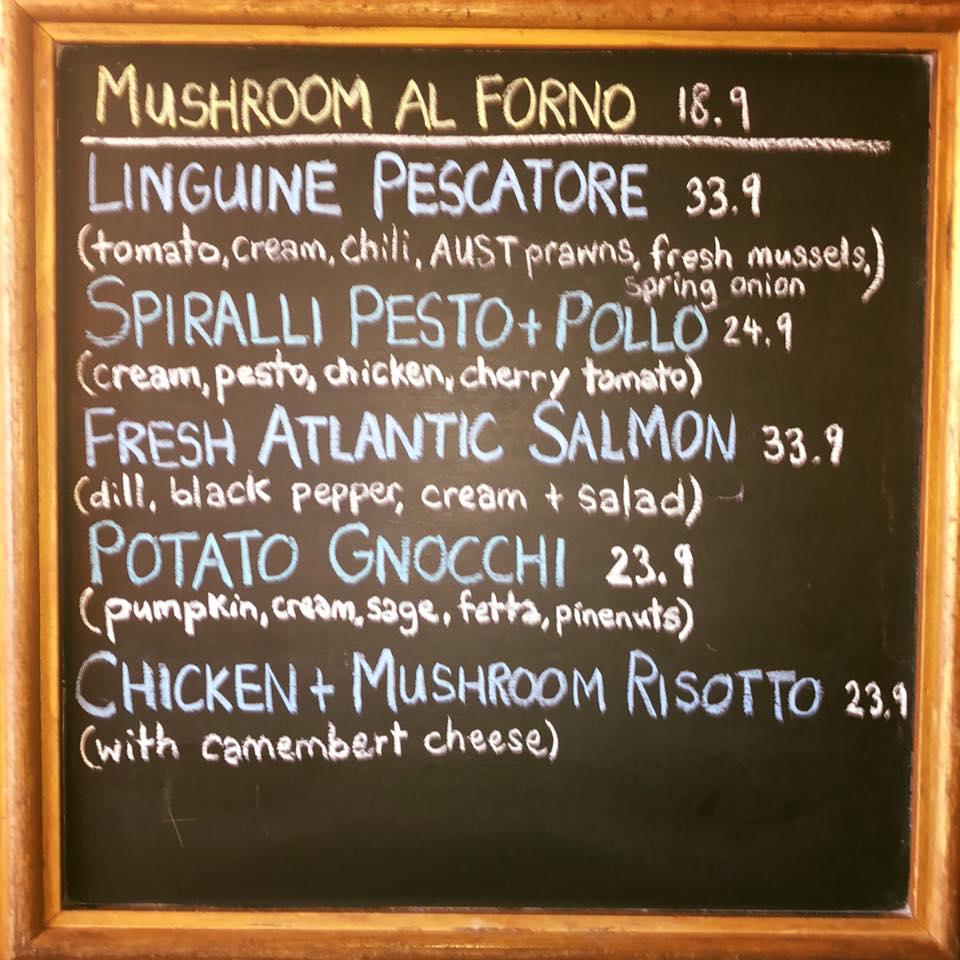 MUSHROOM AL FORNO 18.9
LINGUINE PESCATORE 33.9
(tomato, cream, chili, AUST prawns, fresh mussels,)
spring onion
SPIRALLI PESTO + POLLO 24.9
(cream, pesto, chicken, cherry tomato)
FRESH ATLANTIC SALMON 33.9
(dill, black pepper, cream + salad)
POTATO GNOCCHI 23.9
(pumpkin, cream, sage, fetta, pinenuts)
CHICKEN + MUSHROOM RISOTTO 23.9
(with camembert cheese)